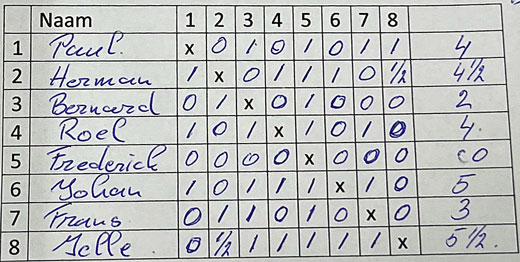 Naam 1 2 3 4 5 6 7 8
1 Paul. x 0 1 0 1 0 1 1 4
2 Herman 1 x 0 1 1 1 0 1/2 4 1/2
3 Bernard 0 1 x 0 1 0 0 0 2
4 Roel 1 0 1 x 1 0 1 0 4.
5 Frederick 0 0 0 0 x 0 0 0 0
6 Johan 1 0 1 1 1 x 1 0 5
7 Frans 0 1 1 0 1 0 x 0 3
8 Jelle 0 1/2 1 1 1 1 1 x 5 1/2